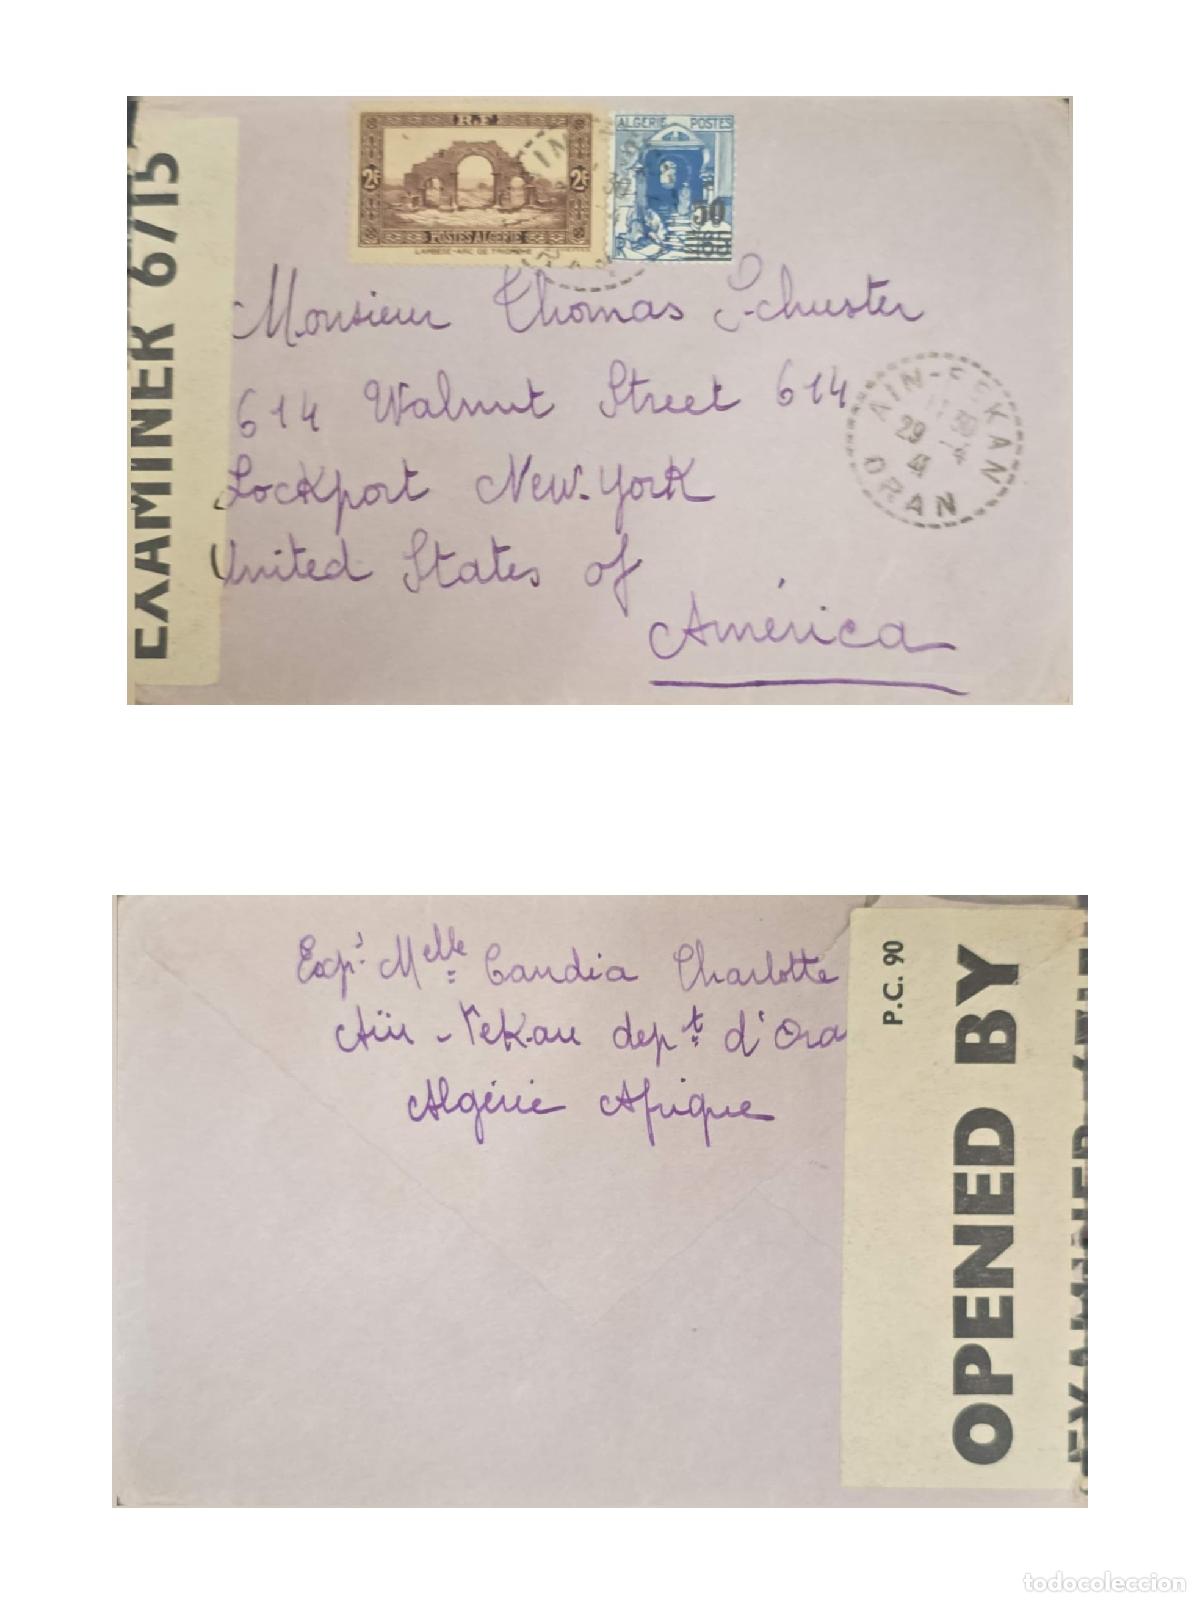 EXAMINER 6715
R.F.
2F 2F
POSTES ALGERIE
LAMBESE-ARC DE TRIOMPHE
ALGERIE POSTES
50
Monsieur Thomas Schuster
614 Walnut Street 614
Lockport New-York
United States of
América
AIN-FEKAN
29
41
ORAN
Expr Melle Candia Charlotte
Aïn-Fekan dept d'Ora
Algérie Afrique
P.C. 90
OPENED BY
EXAMINER
todocoleccion